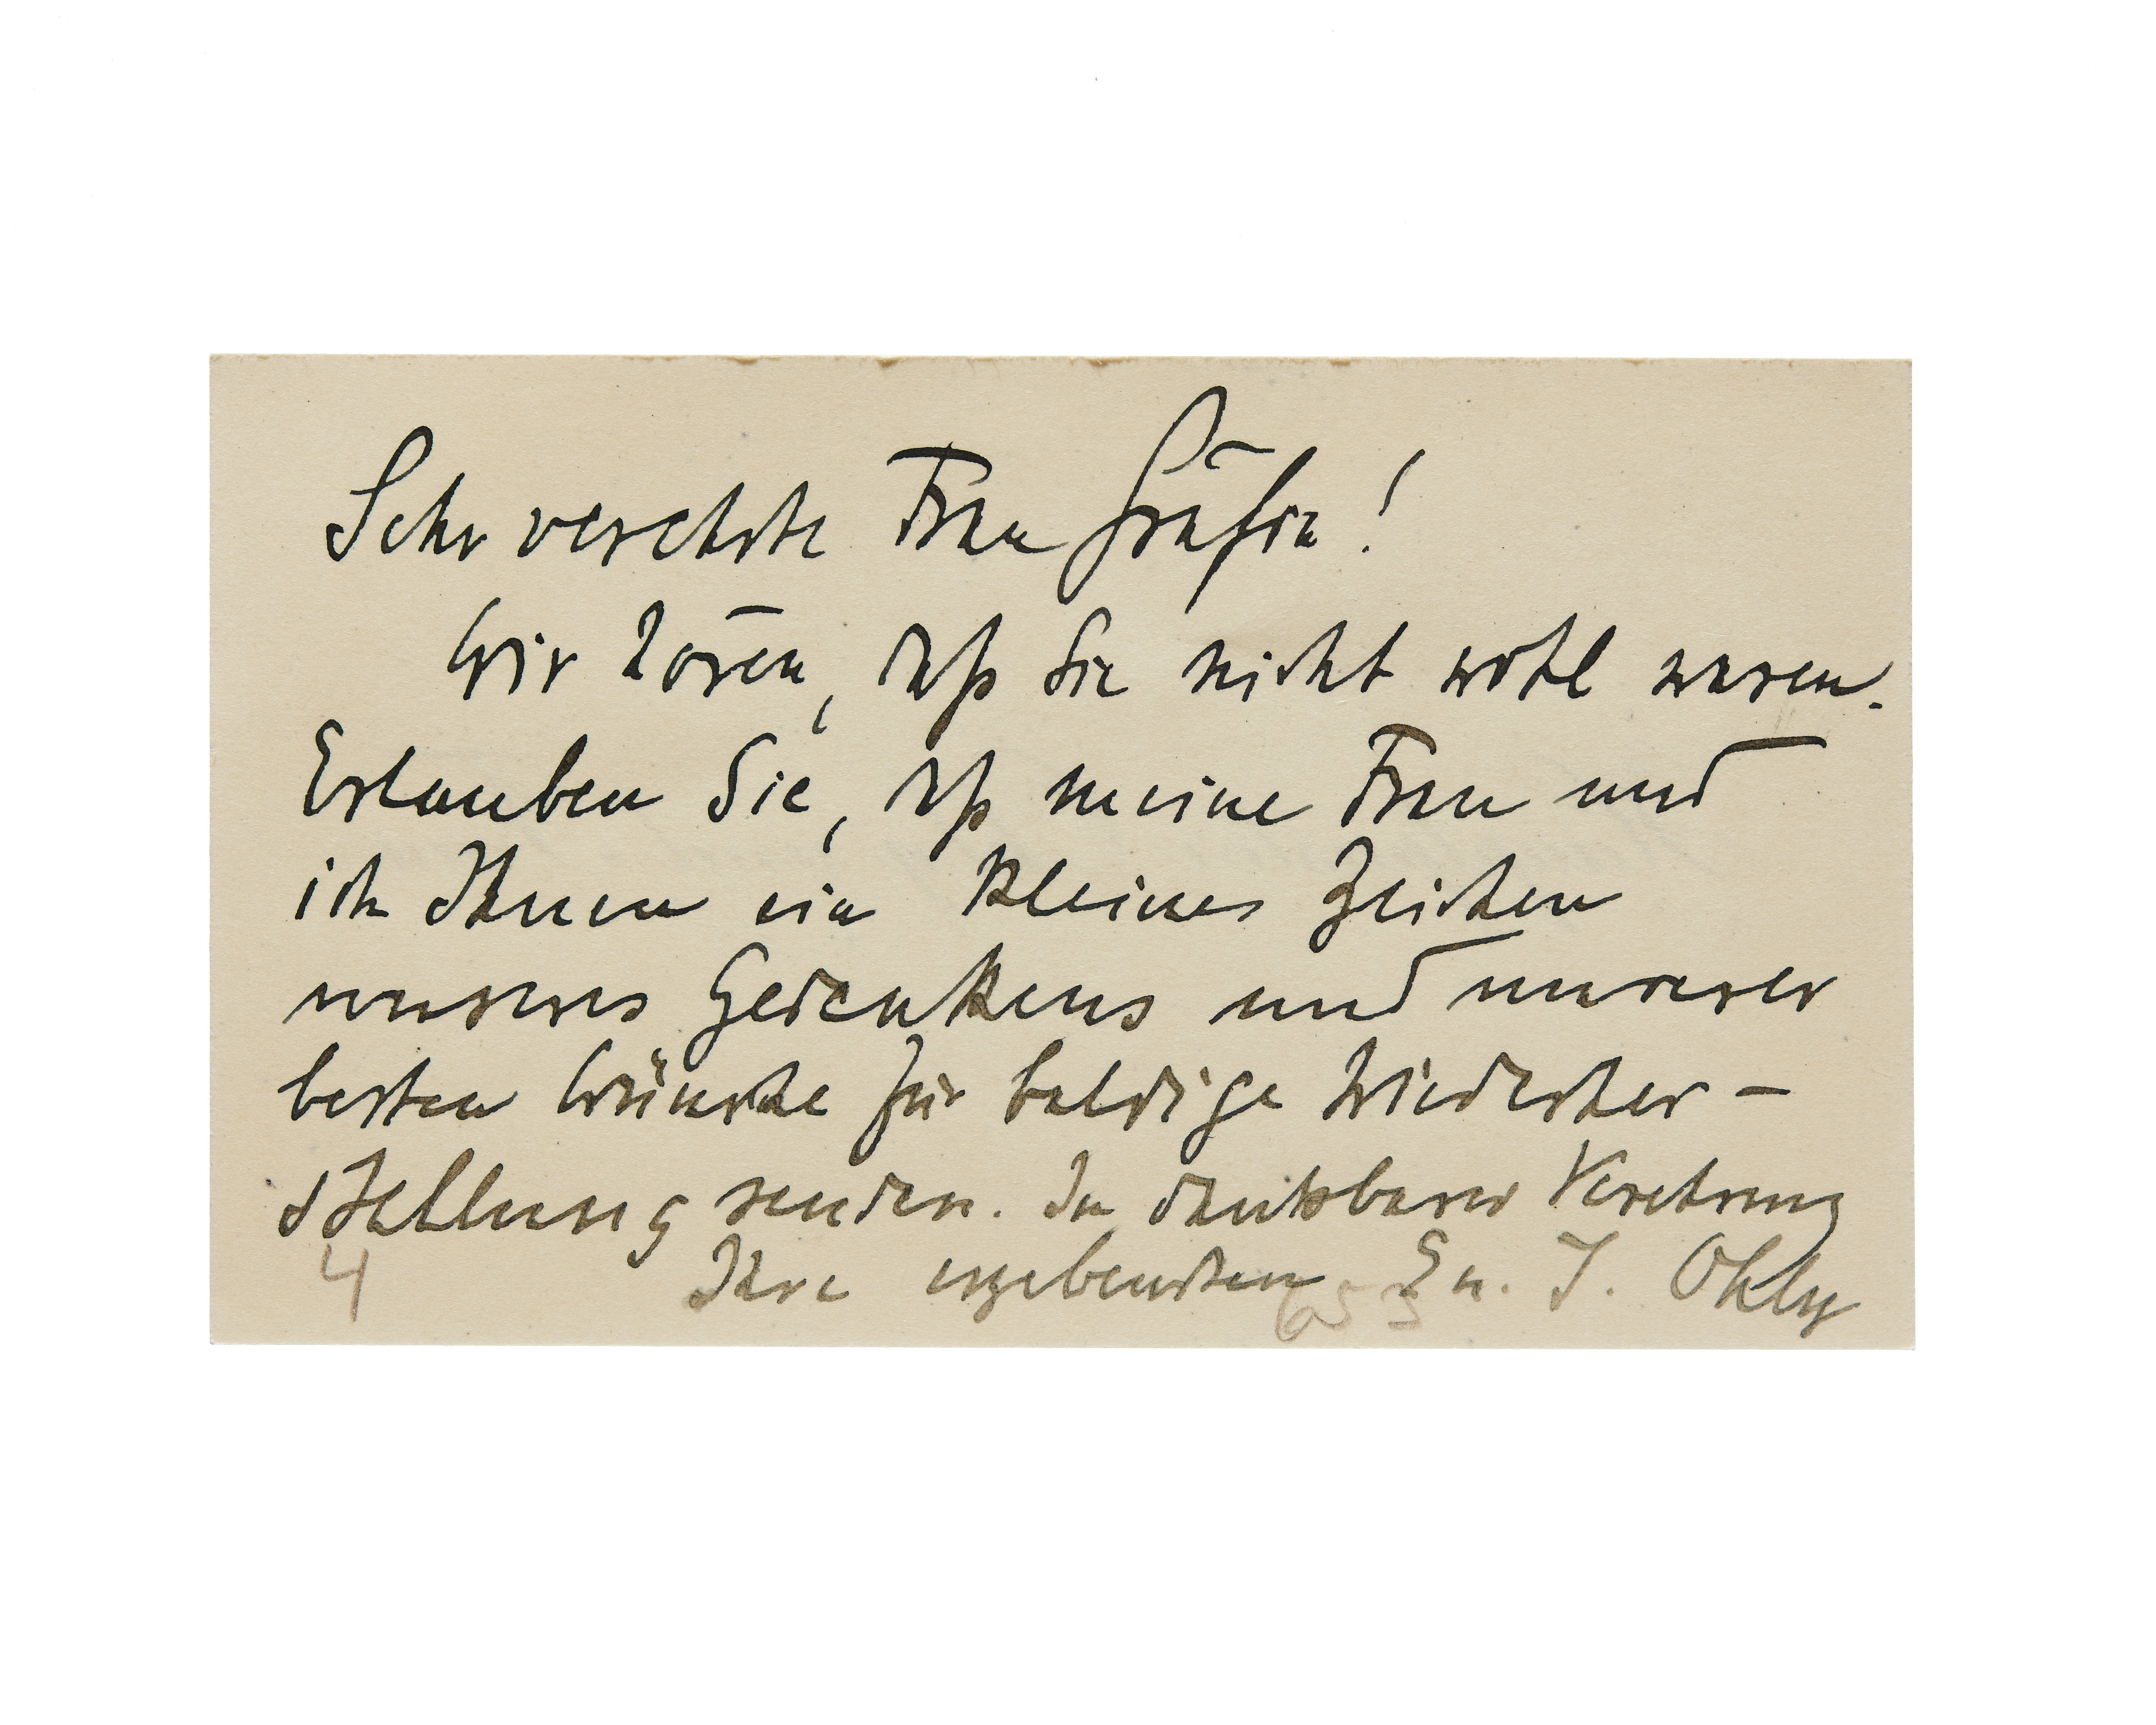 Sehr verehrte Frau Gräfin!
Wir hören, daß Sie nicht wohl waren.
Erlauben Sie, daß meine Frau und
ich Ihnen ein kleines Zeichen
unseres Gedenkens und unserer
besten Wünsche für baldige Wiederher-
stellung senden. In dankbarer Verehrung
4 Ihre ergebensten E u. J. Ohly
653